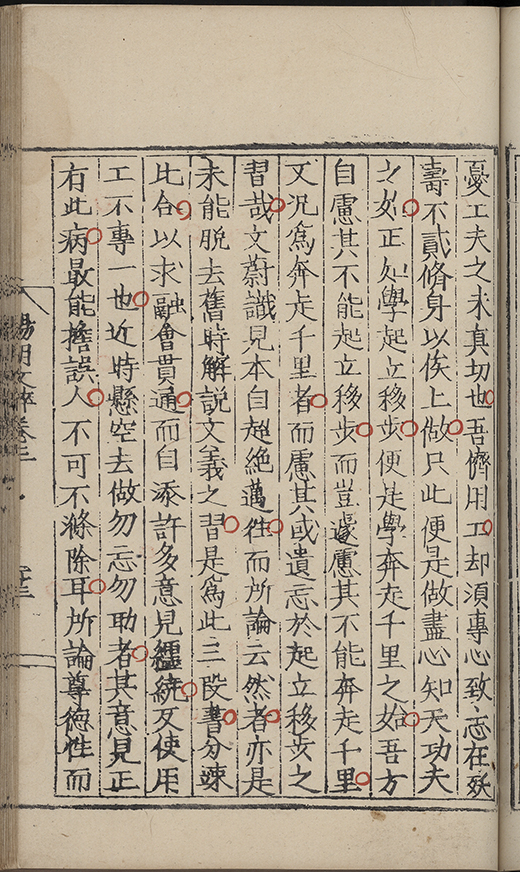 憂工夫之未真切也吾儕用工却須專心致志在殀
壽不貳脩身以俟上做只此便是做盡心知天功夫
之始正如學起立移步便是學奔走千里之始吾方
自慮其不能起立移步而豈遽慮其不能奔走千里
又况爲奔走千里者而慮其或遺忘於起立移步之
習哉文蔚識見本自超絶邁往而所論云然者亦是
未能脱去舊時解説文義之習是爲此三段書分疎
比合以求融會貫通而自添許多意見纒統反使用
工不專一也近時懸空去做勿忘勿助者其意見正
有此病最能擔誤人不可不滌除耳所論尊德性而
陽明文粹卷